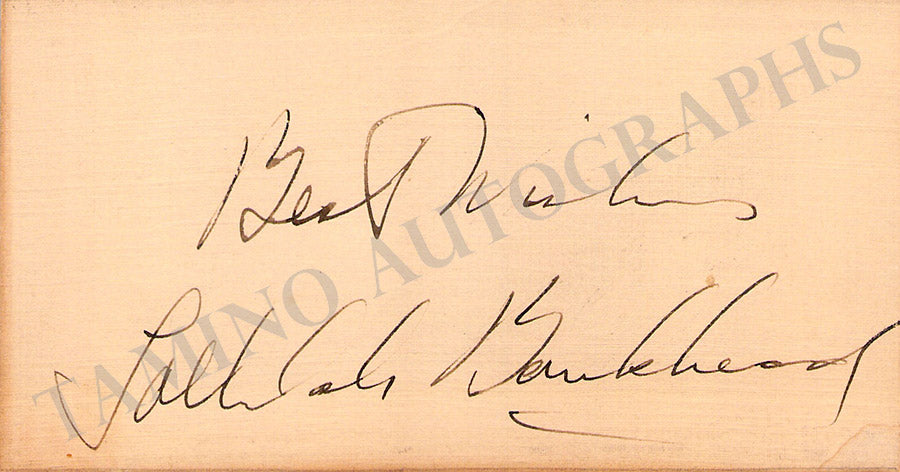 Best Wishes
Tallulah Bankhead
TAMINO AUTOGRAPHS